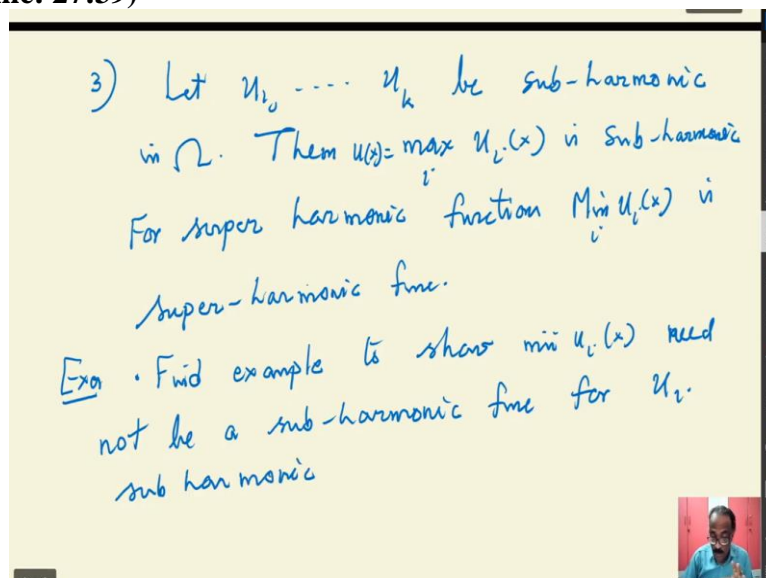 3) Let u₁, .... uₖ be sub-harmonic
in Ω. Then u(x)= max u_i(x) is Sub-harmonic
i
For super harmonic function Min u_i(x) is
i
super-harmonic func.
Exer . Find example to show min u_i(x) need
not be a sub-harmonic func for u_i.
sub harmonic